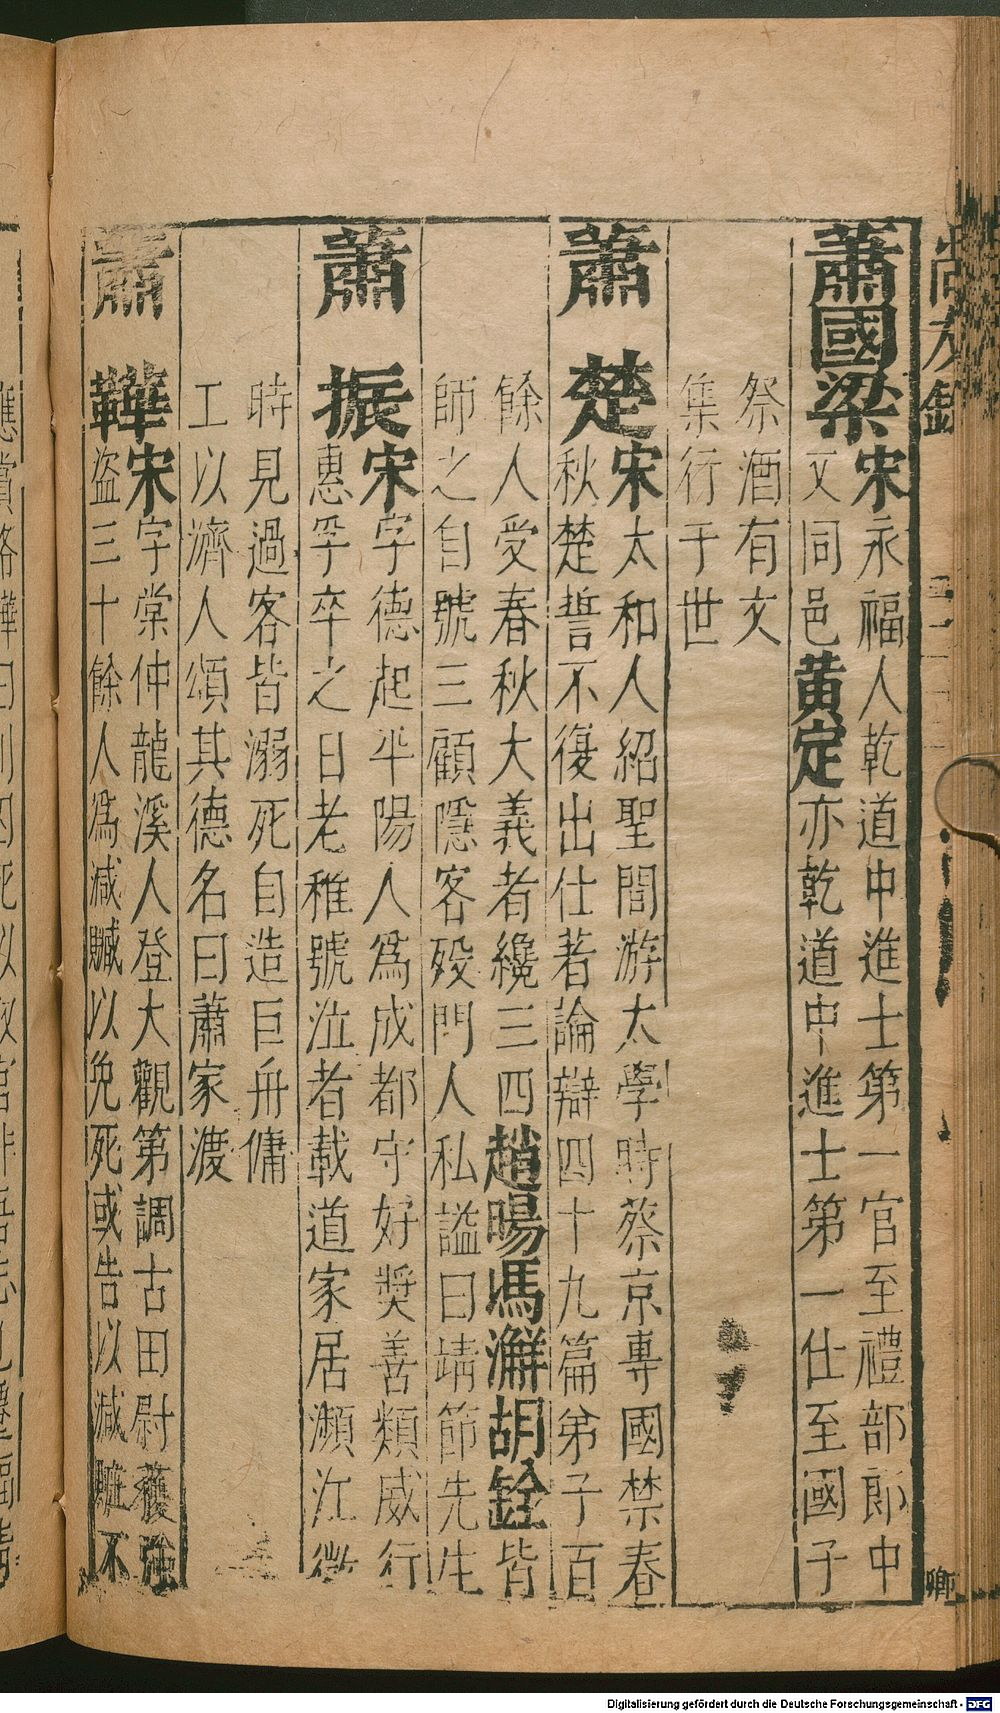 尚友錄
蕭國梁
宋永福人乾道中進士第一官至禮部郎中
又同邑黃定亦乾道中進士第一仕至國子
祭酒有文
集行于世
蕭楚
宋太和人紹聖間游太學時蔡京專國禁春
秋楚誓不復出仕著論辯四十九篇弟子百
餘人受春秋大義者纔三四趙暘馮澥胡銓皆
師之自號三顧隱客歿門人私謚曰靖節先生
蕭振
宋字德起平陽人為成都守好獎善類威行
惠孚卒之日老稚號泣者載道家居瀕江
時見過客皆溺死自造巨舟傭
工以濟人頌其德名曰蕭家渡
蕭韡
宋字棠仲龍溪人登大觀第調古田尉獲強
盜三十餘人為減贓以免死或告以減賍不
應賞格韡曰
Digitalisierung gefördert durch die Deutsche Forschungsgemeinschaft - DFG